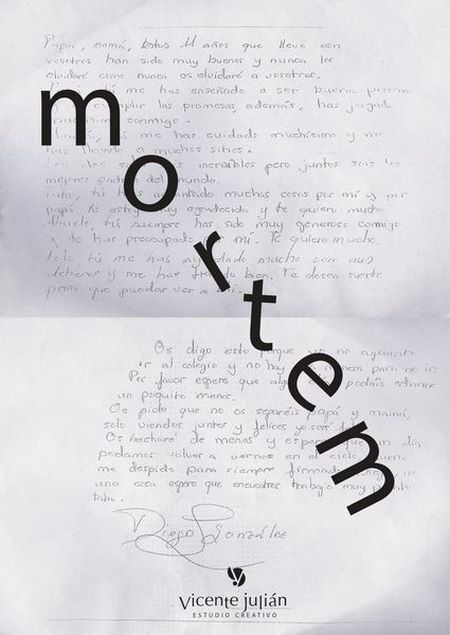 Papá, mamá, estos 11 años que llevo con
vosotros han sido muy buenos y nunca los
olvidaré como nunca os olvidaré a vosotros.
me has enseñado a ser buena persona
las promesas, además, has jugado
muchísimo conmigo.
me has cuidado muchísimo y me
has a muchos sitios.
increíbles pero juntos sois los
mejores del mundo.
Tata, tú has aguantado muchas cosas por mí y por
papá, te estoy muy agradecido y te quiero mucho
Abuelo, tú siempre has sido muy generoso conmigo
y te has preocupado por mí. Te quiero mucho.
Lolo, tú me has ayudado mucho con mis
deberes y me has tratado bien. Te deseo suerte
para que puedas ver a
Os digo esto porque yo no aguanto
ir al colegio y no hay para no ir
Por favor espero que algún podáis odiarme
un poquito menos.
Os pido que no os separéis papá y mamá,
solo viéndoos juntos y felices yo seré feliz
Os echaré de menos y espero que un día
podamos volver a vernos en el cielo. Bueno
me despido para siempre firmado
una cosa espero que encuentres trabajo muy pronto
tata.
Diego González
mortem
Vicente Julián
ESTUDIO CREATIVO